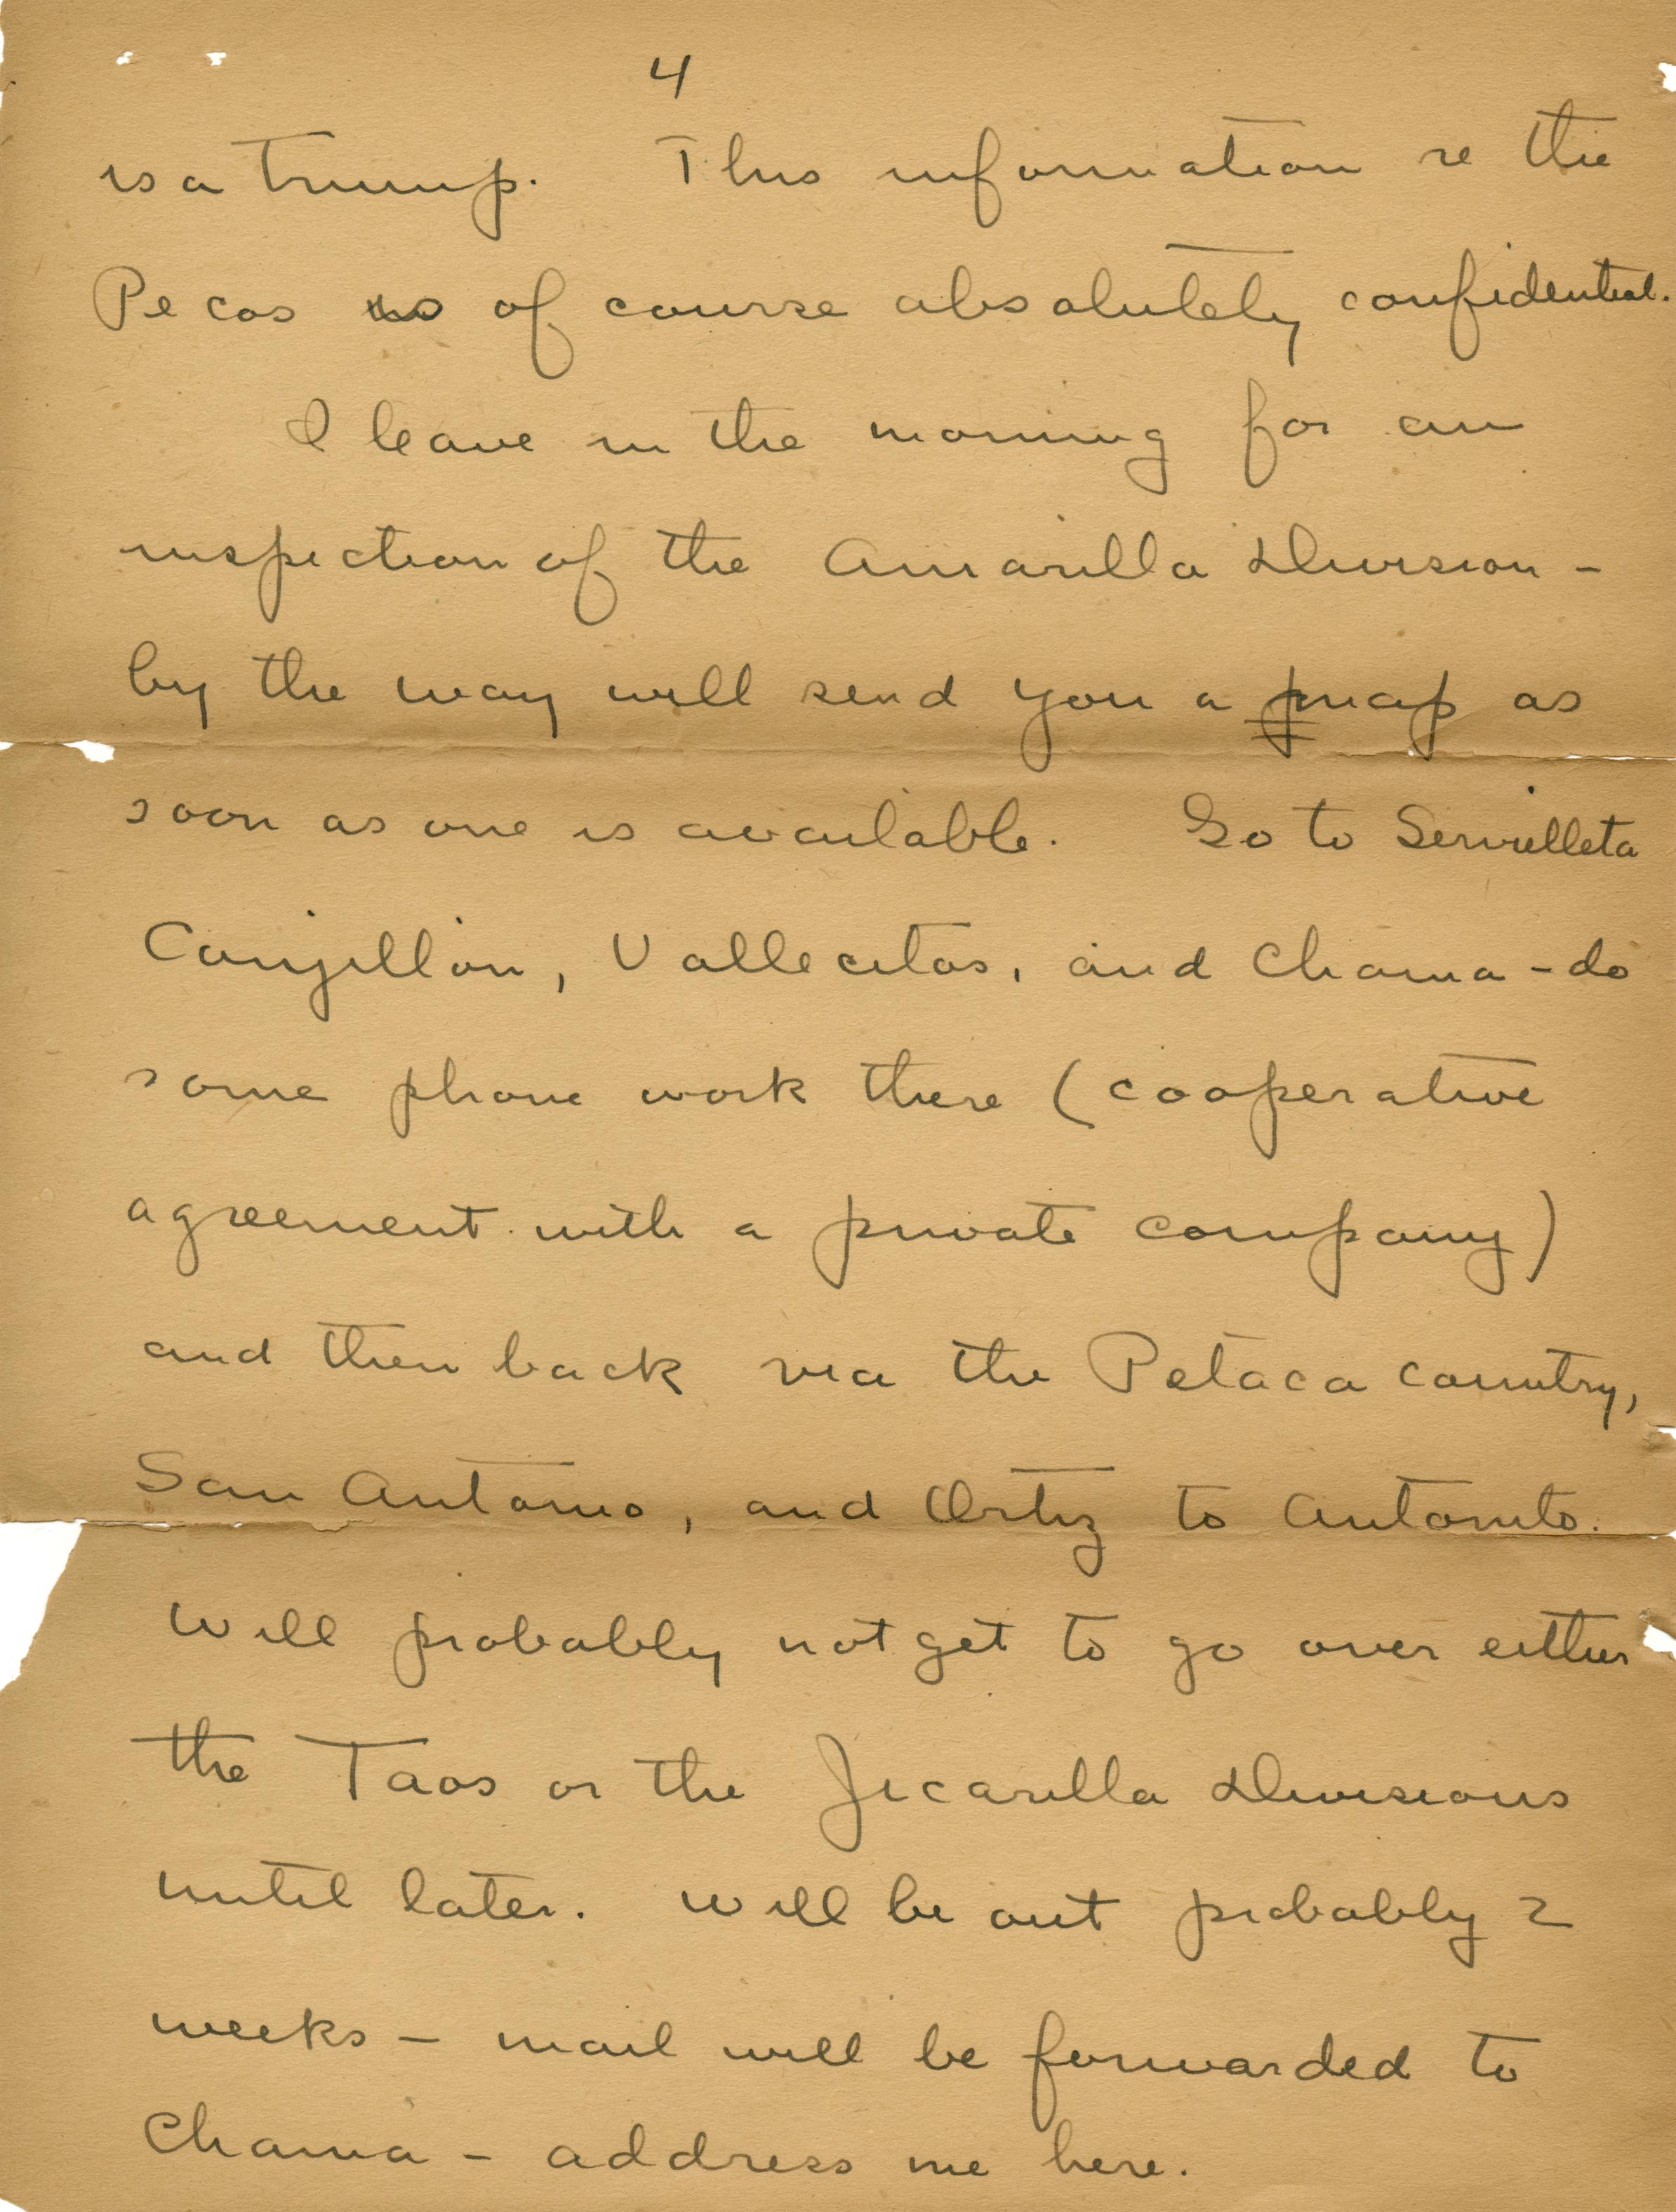 4
is a trump. This information re the
Pecos is of course absolutely confidential.
I leave in the morning for an
inspection of the Amarilla Division -
by the way will send you a map as
soon as one is available. Go to Servilleta
Canjillon, Vallecitos, and Chama - do
some phone work there (cooperative
agreement with a private company)
and then back via the Petaca country,
San Antonio, and Ortiz to Antonito.
Will probably not get to go over either
the Taos or the Jicarilla Divisions
until later. Will be out probably 2
weeks - mail will be forwarded to
Chama - address me here.